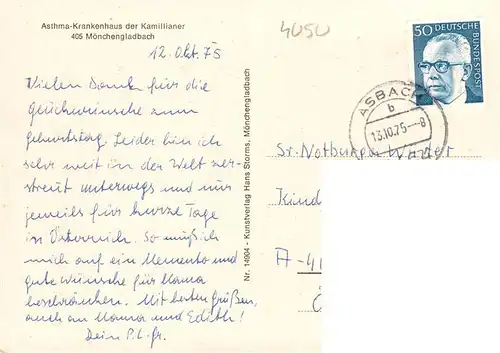 Asthma-Krankenhaus der Kamillianer
405 Mönchengladbach
12. Okt. 75
Vielen Dank für die
Glückwünsche zum
Geburtstag. Leider bin ich
sehr weit in der Welt zer-
streut unterwegs und nur
jeweils für kurze Tage
in Österreich. So muß ich
mich auf ein Memento und
gute Wünsche für Mama
beschränken. Mit besten Grüßen,
auch an Mama und Edith!
Dein P.L.
Nr. 14904 - Kunstverlag Hans Storms, Mönchengladbach
4050
50 DEUTSCHE
BUNDESPOST
ASBACH
b
13.10.75-8
Sr. Notburga
Kind
A-41